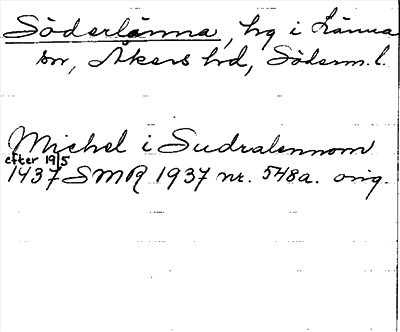 Söderlänna, hg i Länna
sn, Åkers hd, Söderm. l.
Michel i Sudralennom
efter 19/5
1437 SMR 1937 nr. 548a. orig.